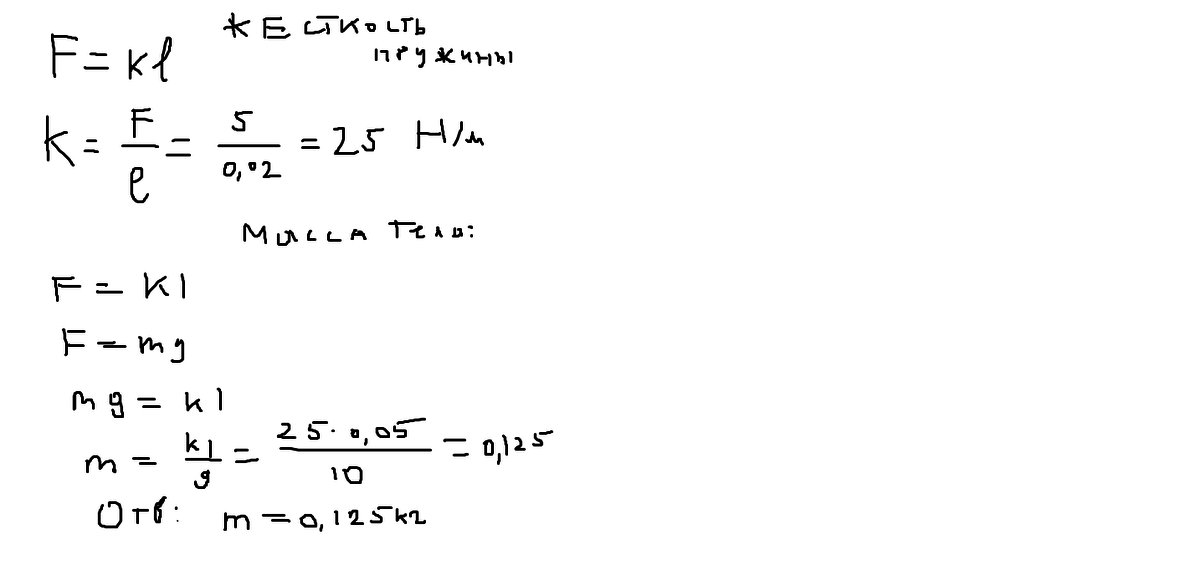 F = kl жесткость
пружины
k = F/l = 5/0,02 = 25 Н/м
Масса тела:
F = kl
F = mg
mg = kl
m = kl/g = 25·0,05/10 = 0,125
Отв: m = 0,125кг